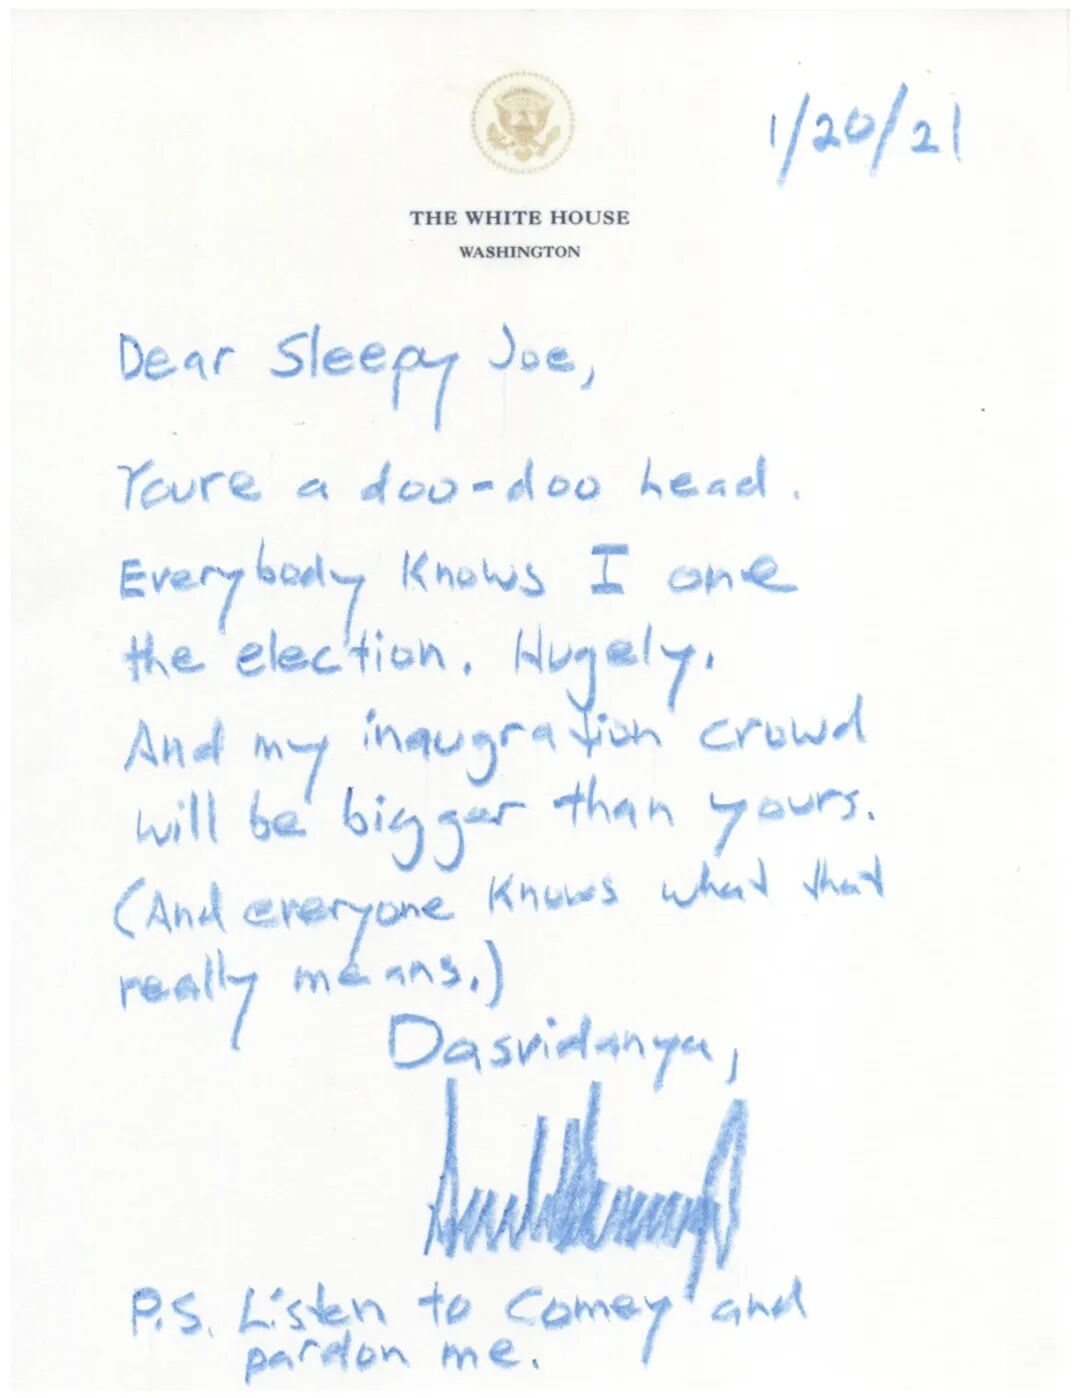 1/20/21
THE WHITE HOUSE
WASHINGTON
Dear Sleepy Joe,
Youre a doo-doo head.
Everybody Knows I one
the election. Hugely.
And my inaugration crowd
will be bigger than yours.
(And everyone Knows what that
really means.)
Dasvidanya,
P.S. Listen to Comey and
pardon me.